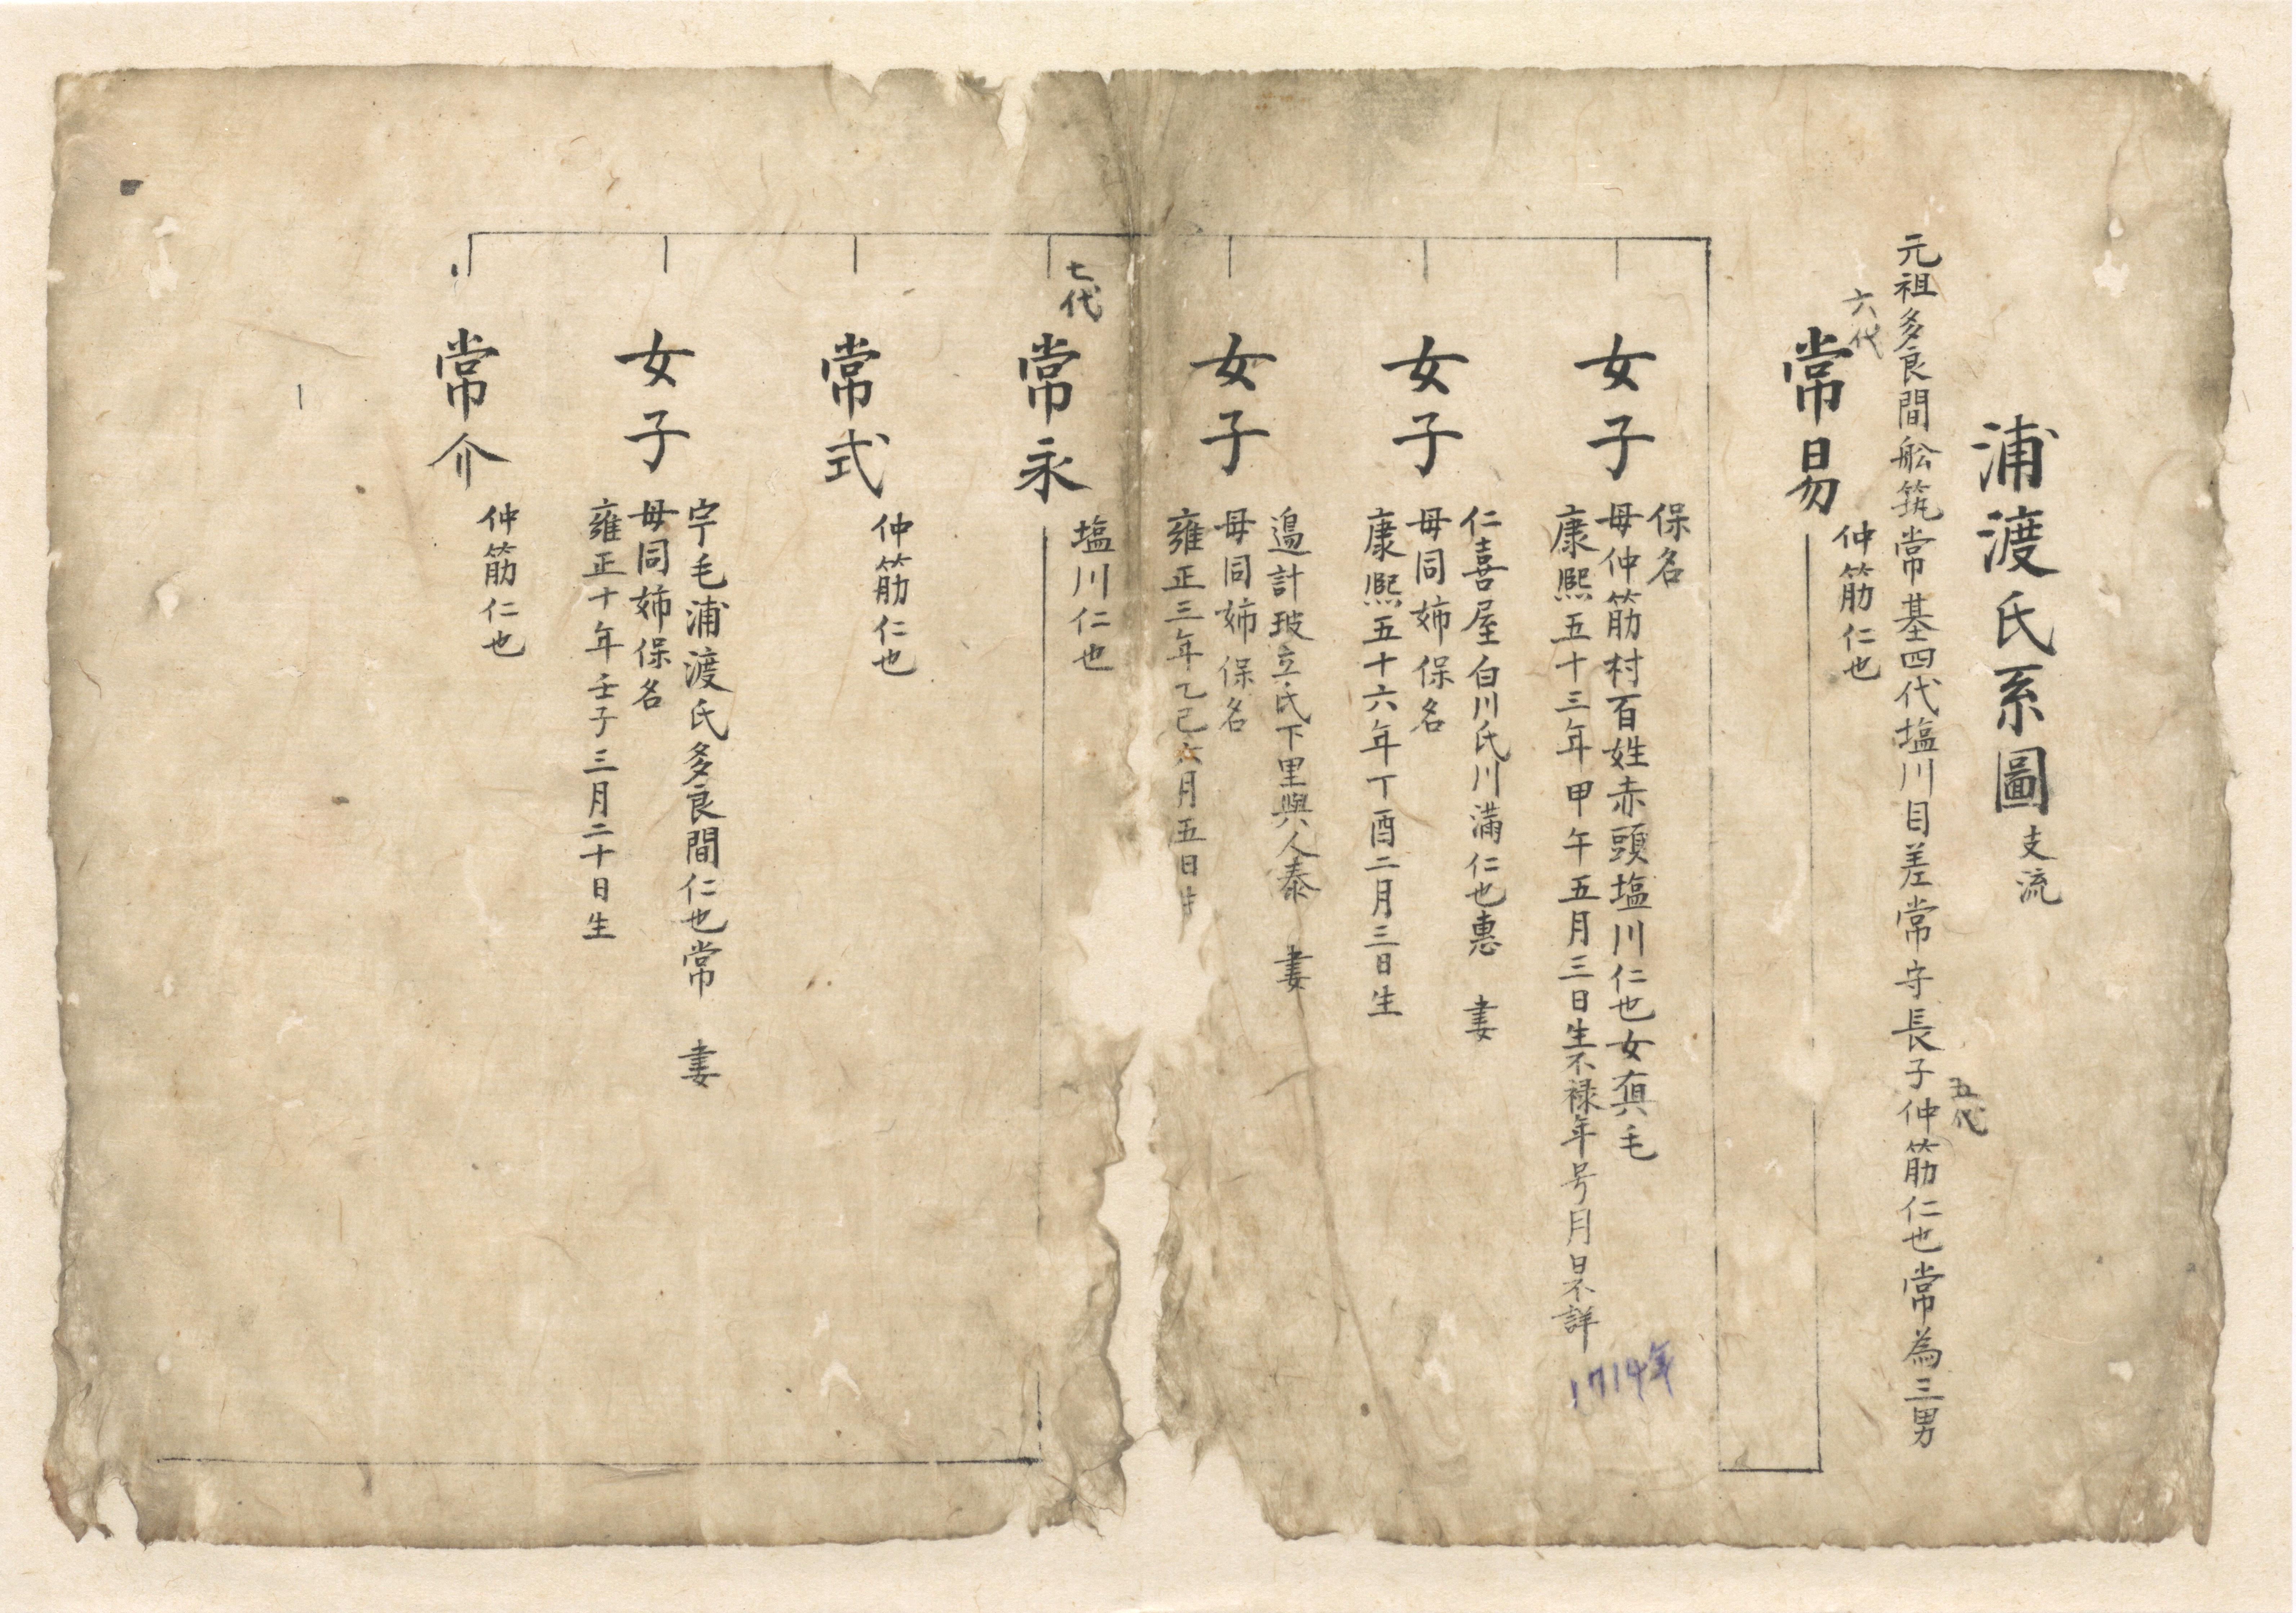 浦渡氏系圖 支流
元祖多良間舩筑常基四代塩川目差常守長子仲筋仁也常為三男
五代
六代
常易 仲筋仁也
女子
保名
母仲筋村百姓赤頭塩川仁也女真毛
康熙五十三年甲午五月三日生不禄年号月日不詳
1714年
女子
仁喜屋白川氏川満仁也惠 妻
母同姉保名
康熙五十六年丁酉二月三日生
女子
邉計玻立氏下里與人泰 妻
母同姉保名
雍正三年乙巳六月五日生
七代
常永 塩川仁也
常式 仲筋仁也
女子
宇毛浦渡氏多良間仁也常 妻
母同姉保名
雍正十年壬子三月二十日生
常介 仲筋仁也